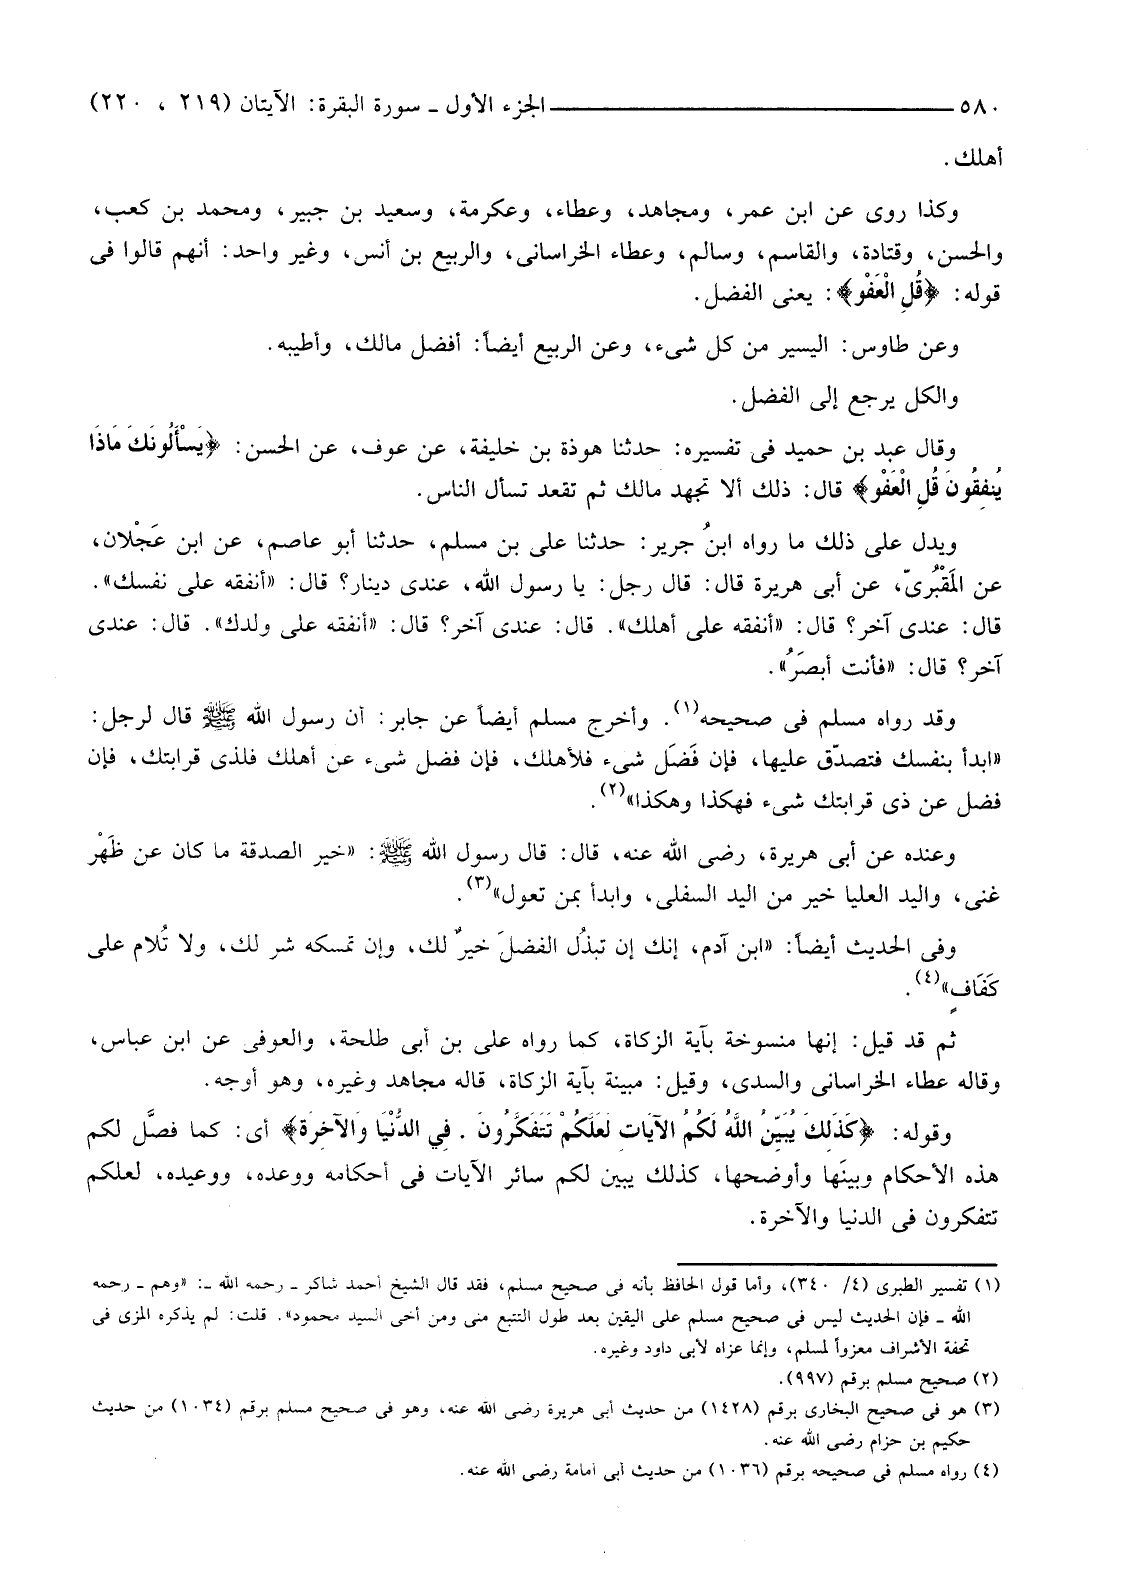 ٥٨٠ ــــــ الجزء الأول ـ سورة البقرة: الآيتان (٢١٩ ، ٢٢٠)
أهلك.
وكذا روى عن ابن عمر، ومجاهد، وعطاء، وعكرمة، وسعيد بن جبير، ومحمد بن كعب،
والحسن، وقتادة، والقاسم، وسالم، وعطاء الخراسانى، والربيع بن أنس، وغير واحد: أنهم قالوا فى
قوله: ﴿قُلِ الْعَفْو﴾: يعنى الفضل.
وعن طاوس: اليسير من كل شىء، وعن الربيع أيضاً: أفضل مالك، وأطيبه.
والكل يرجع إلى الفضل.
وقال عبد بن حميد فى تفسيره: حدثنا هوذة بن خليفة، عن عوف، عن الحسن: ﴿يَسْأَلُونَكَ مَاذَا
يُنفِقُونَ قُلِ الْعَفْو﴾ قال: ذلك ألا تجهد مالك ثم تقعد تسأل الناس.
ويدل على ذلك ما رواه ابنُ جرير: حدثنا على بن مسلم، حدثنا أبو عاصم، عن ابن عَجْلان،
عن المَقْبُرىّ، عن أبى هريرة قال: قال رجل: يا رسول الله، عندى دينار؟ قال: «أنفقه على نفسك».
قال: عندى آخر؟ قال: «أنفقه على أهلك». قال: عندى آخر؟ قال: «أنفقه على ولدك». قال: عندى
آخر؟ قال: «فأنت أبصَرُ».
وقد رواه مسلم فى صحيحه(١). وأخرج مسلم أيضاً عن جابر: أن رسول الله ﷺ قال لرجل:
«ابدأ بنفسك فتصدّق عليها، فإن فَضَل شىء فلأهلك، فإن فضل شىء عن أهلك فلذى قرابتك، فإن
فضل عن ذى قرابتك شىء فهكذا وهكذا»(٢).
وعنده عن أبى هريرة، رضى الله عنه، قال: قال رسول الله ﷺ: «خير الصدقة ما كان عن ظَهْر
غنى، واليد العليا خير من اليد السفلى، وابدأ بمن تعول»(٣).
وفى الحديث أيضاً: «ابن آدم، إنك إن تبذُل الفضلَ خيرٌ لك، وإن تمسكه شر لك، ولا تُلام على
كَفَافٍ»(٤).
ثم قد قيل: إنها منسوخة بآية الزكاة، كما رواه على بن أبى طلحة، والعوفى عن ابن عباس،
وقاله عطاء الخراسانى والسدى، وقيل: مبينة بآية الزكاة، قاله مجاهد وغيره، وهو أوجه.
وقوله: ﴿كَذَلِكَ يُبَيِّنُ اللَّهُ لَكُمُ الآيَاتِ لَعَلَّكُمْ تَتَفَكَّرُونَ . فِي الدُّنْيَا وَالآخِرَة﴾ أى: كما فصَّل لكم
هذه الأحكام وبينَها وأوضحها، كذلك يبين لكم سائر الآيات فى أحكامه ووعده، ووعيده، لعلكم
تتفكرون فى الدنيا والآخرة.
(١) تفسير الطبرى (٤/ ٣٤٠)، وأما قول الحافظ بأنه فى صحيح مسلم، فقد قال الشيخ أحمد شاكر ـ رحمه الله ـ: «وهم ـ رحمه
الله ـ فإن الحديث ليس فى صحيح مسلم على اليقين بعد طول التتبع منى ومن أخى السيد محمود». قلت: لم يذكره المزى فى
تحفة الأشراف معزواً لمسلم، وإنما عزاه لأبى داود وغيره.
(٢) صحيح مسلم برقم (٩٩٧).
(٣) هو فى صحيح البخارى برقم (١٤٢٨) من حديث أبى هريرة رضى الله عنه، وهو فى صحيح مسلم برقم (١٠٣٤) من حديث
حكيم بن حزام رضى الله عنه.
(٤) رواه مسلم فى صحيحه برقم (١٠٣٦) من حديث أبى أمامة رضى الله عنه.